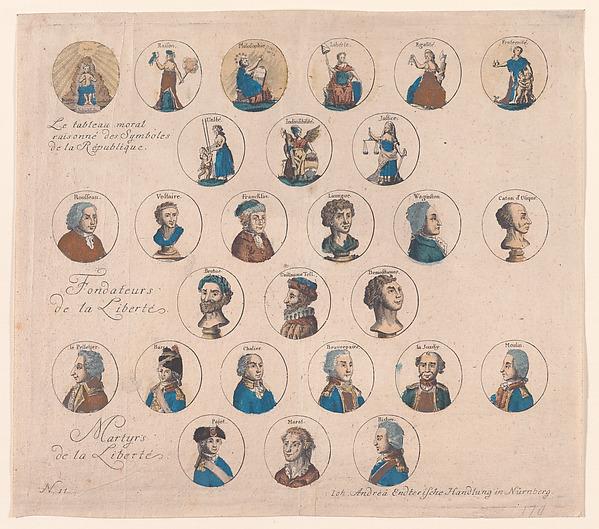 Raison.
Philosophie
Liberté.
Egalité.
Fraternité.
Le tableau moral
raisonné des Symboles
de la République.
Unité.
Indivisibilité.
Justice.
Rousseau.
Voltaire.
Francklin.
Waginston.
Caton d'Utique
Brutus.
Guillaume Tell.
Demosthenes.
Fondateurs
de la Liberté.
le Pelletier.
Bara.
Chalier.
Beaurepaire.
Moulin.
Martyrs
de la Liberté.
Marat.
N. 11.
Ioh. Andreä Endterische Handlung in Nürnberg.